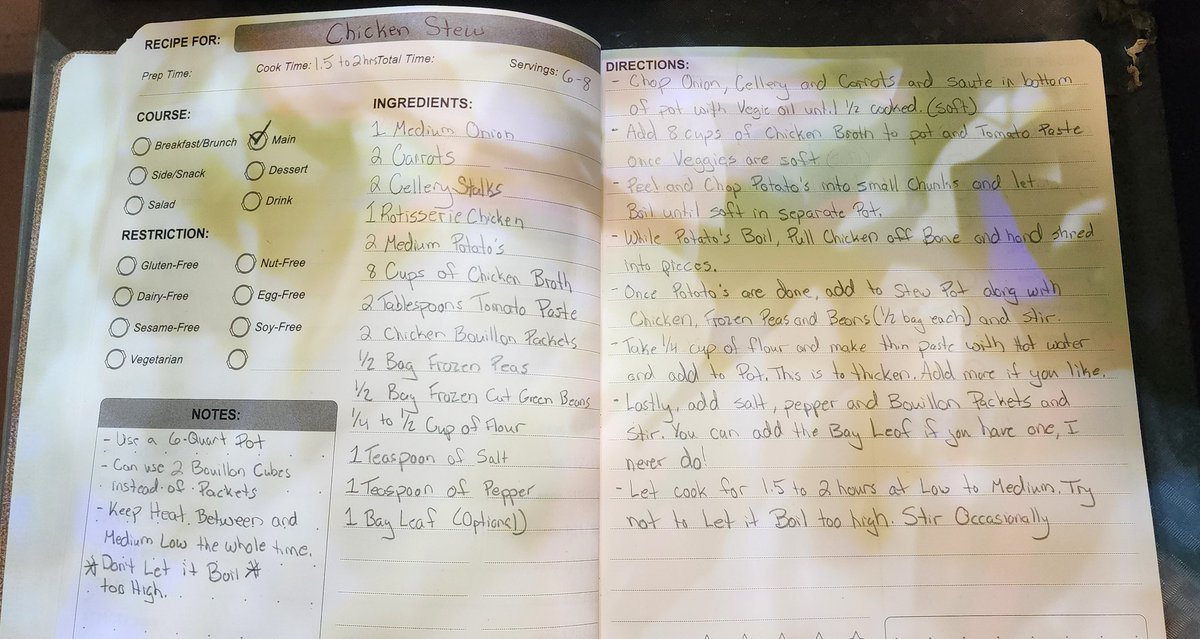 RECIPE FOR: Chicken Stew
Prep Time: Cook Time: 1.5 to 2 hrs Total Time: Servings: 6-8
COURSE:
Breakfast/Brunch Main
Side/Snack Dessert
Salad Drink
RESTRICTION:
Gluten-Free Nut-Free
Dairy-Free Egg-Free
Sesame-Free Soy-Free
Vegetarian
NOTES:
- Use a 6-Quart Pot
- Can use 2 Bouillon Cubes
instead of Packets
- Keep Heat Between and
Medium Low the whole time.
* Don't Let it Boil *
too High.
INGREDIENTS:
1 Medium Onion
2 Carrots
2 Cellery Stalks
1 Rotisserie Chicken
2 Medium Potato's
8 Cups of Chicken Broth
2 Tablespoons Tomato Paste
2 Chicken Bouillon Packets
1/2 Bag Frozen Peas
1/2 Bag Frozen Cut Green Beans
1/4 to 1/2 Cup of Flour
1 Teaspoon of Salt
1 Teaspoon of Pepper
1 Bay Leaf (Optional)
DIRECTIONS:
- Chop Onion, Cellery and Carrots and saute in bottom
of pot with Vegie oil until 1/2 cooked. (soft)
- Add 8 cups of Chicken Broth to pot and Tomato Paste
once Veggies are soft
- Peel and Chop Potato's into small Chunks and let
Boil until soft in separate Pot.
- While Potato's Boil, Pull Chicken off Bone and hand shred
into pieces.
- Once Potato's are done, add to Stew Pot along with
Chicken, Frozen Peas and Beans (1/2 bag each) and stir.
- Take 1/4 cup of flour and make thin paste with Hot water
and add to Pot. This is to thicken. Add more if you like.
- Lastly, add salt, pepper and Bouillon Packets and
Stir. You can add the Bay Leaf if you have one, I
never do!
- Let cook for 1.5 to 2 hours at Low to Medium. Try
not to Let it Boil too high. Stir Occasionally